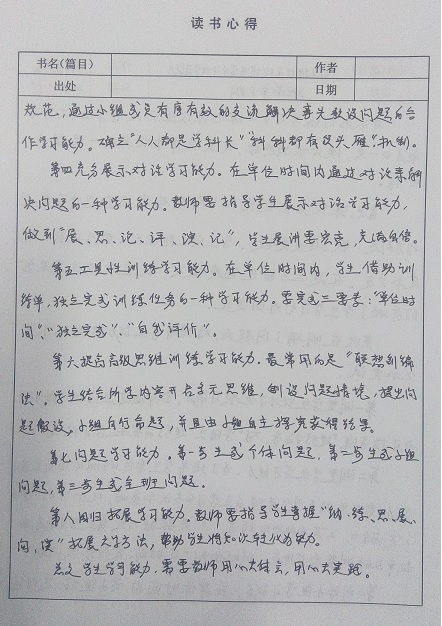 读书心得
书名(篇目) 作者
出处 日期
规范，通过小组成员有序有效的交流解决事先预设问题的合
作学习能力。确立"人人都是学科长""科科都有领头雁"机制。
第四充分展示对话学习能力。在单位时间内通过对话来解
决问题的一种学习能力。教师要指导学生展示对话学习能力，
做到"展、思、论、评、演、记"，学生展讲要宏亮，充满自信。
第五工具性训练学习能力。在单位时间内，学生借助训
练单，独立完成训练任务的一种学习能力。要完成三要素："单位时
间"、"独立完成"、"自我评价"。
第六提高高级思维训练学习能力。最常用的是"联想创编
法"。学生结合所学内容开启多元思维，创设问题情境，提出问
题假设。小组自行命题，并且由小组自主探究获得结果。
第七问题学习能力。第一步生成个体问题，第二步生成小组
问题，第三步生成全班问题。
第八回归拓展学习能力。教师要指导学生掌握"纳、练、思、展、
问、演"拓展六字方法，帮助学生将知识转化为能力。
总之学生学习能力，需要教师用心去体会，用心去实践。